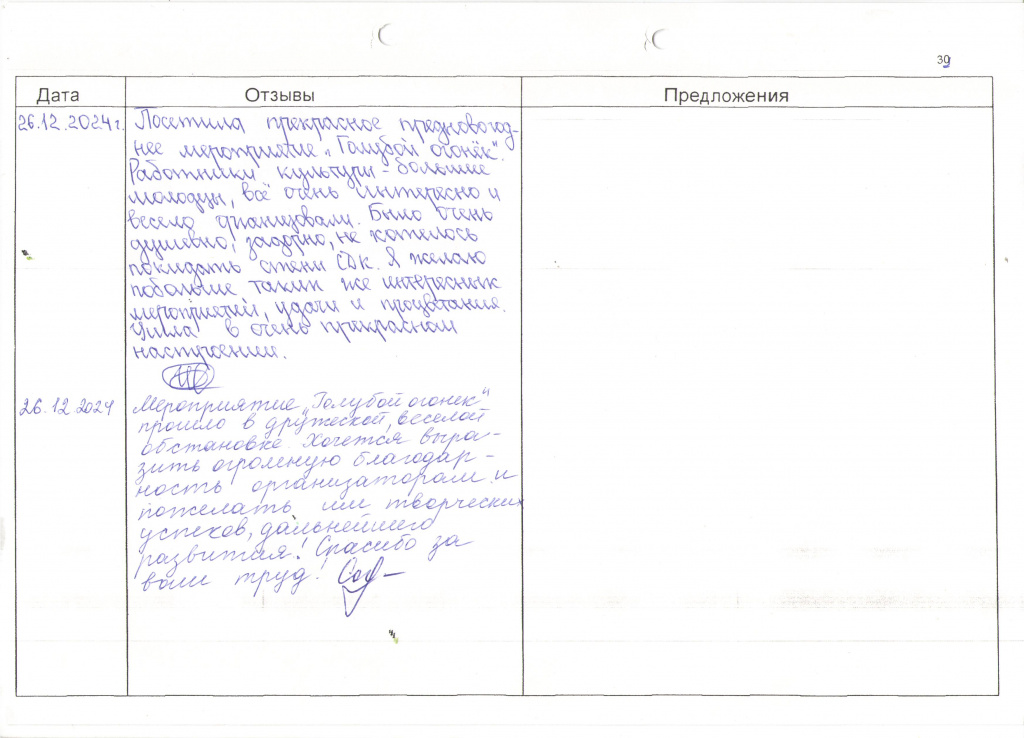 39
Дата Отзывы Предложения
26.12.2024г. Посетила прекрасное предновогод-
нее мероприятие „Голубой огонёк".
Работники культуры - большие
молодцы, всё очень интересно и
весело организовали. Было очень
душевно, задорно, не хотелось
покидать стены СДК. Я желаю
побольше таких же интересных
мероприятий, удачи и процветания.
Ушла в очень прекрасном
настроении.
26.12.2024 Мероприятие „Голубой огонек"
прошло в дружеской, веселой
обстановке. Хочется выра-
зить огромную благодар-
ность организаторам и
пожелать им творческих
успехов, дальнейшего
развития! Спасибо за
ваш труд!